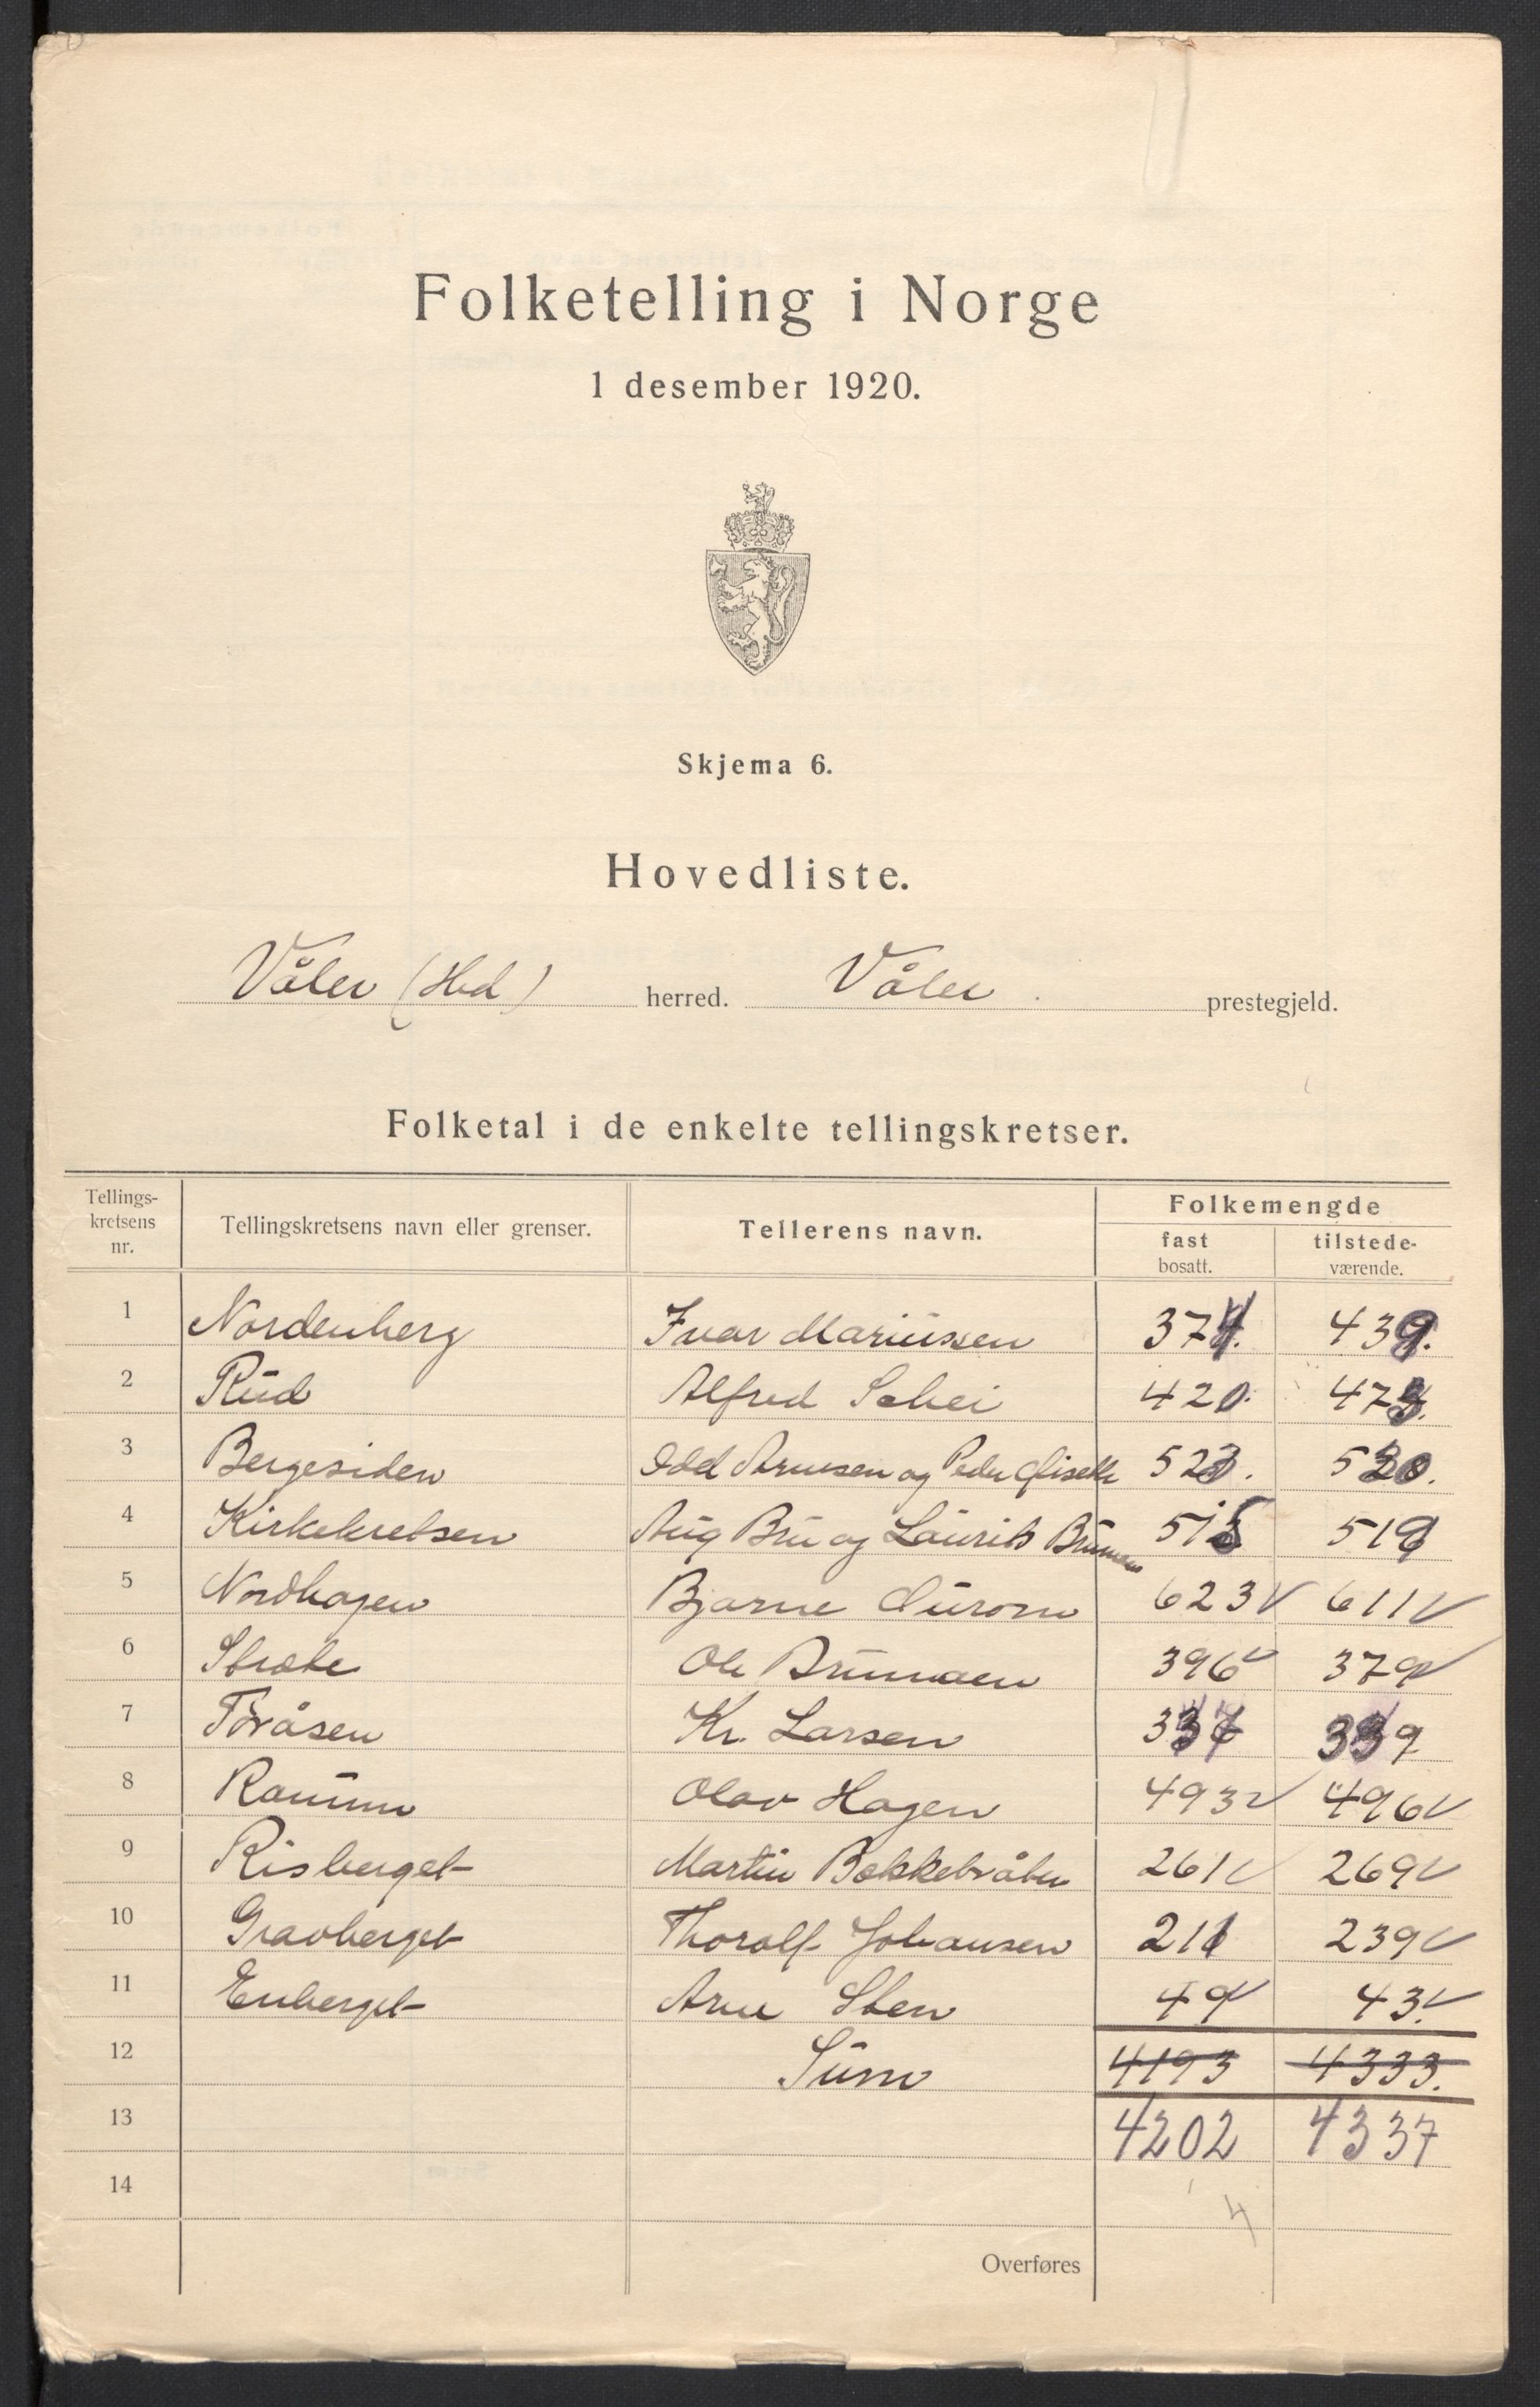 Folketelling i Norge
1 desember 1920.
Skjema 6.
Hovedliste.
Våler (Hed) herred. Våler. prestegjeld.
Folketal i de enkelte tellingskretser.
Tellings-
kretsens
nr.
Tellingskretsens navn eller grenser.
Tellerens navn.
Folkemengde
fast
bosatt.
tilstede-
værende.
1 Nordenberg Ivar Mariussen 374. 439.
2 Rud Alfred Schei 420. 47
3 Bergesiden Odd Arnesen og Peder 523. 520.
4 Kirkekretsen Aug Bru og Laurits Brunæs 515 519
5 Nordhagen Bjarne 623 611
6 Stræte Ole 396 379
7 Toråsen Kr. Larsen 3 339
8 Ramm Olav Hagen 493 496
9 Risberget Martin 261 269
10 Gravberget Thoralf Johansen 211 239
11 Enberget Arne Sten 49 43.
12 Sum 4193 4333.
13 4202 4337
14
4
Overføres